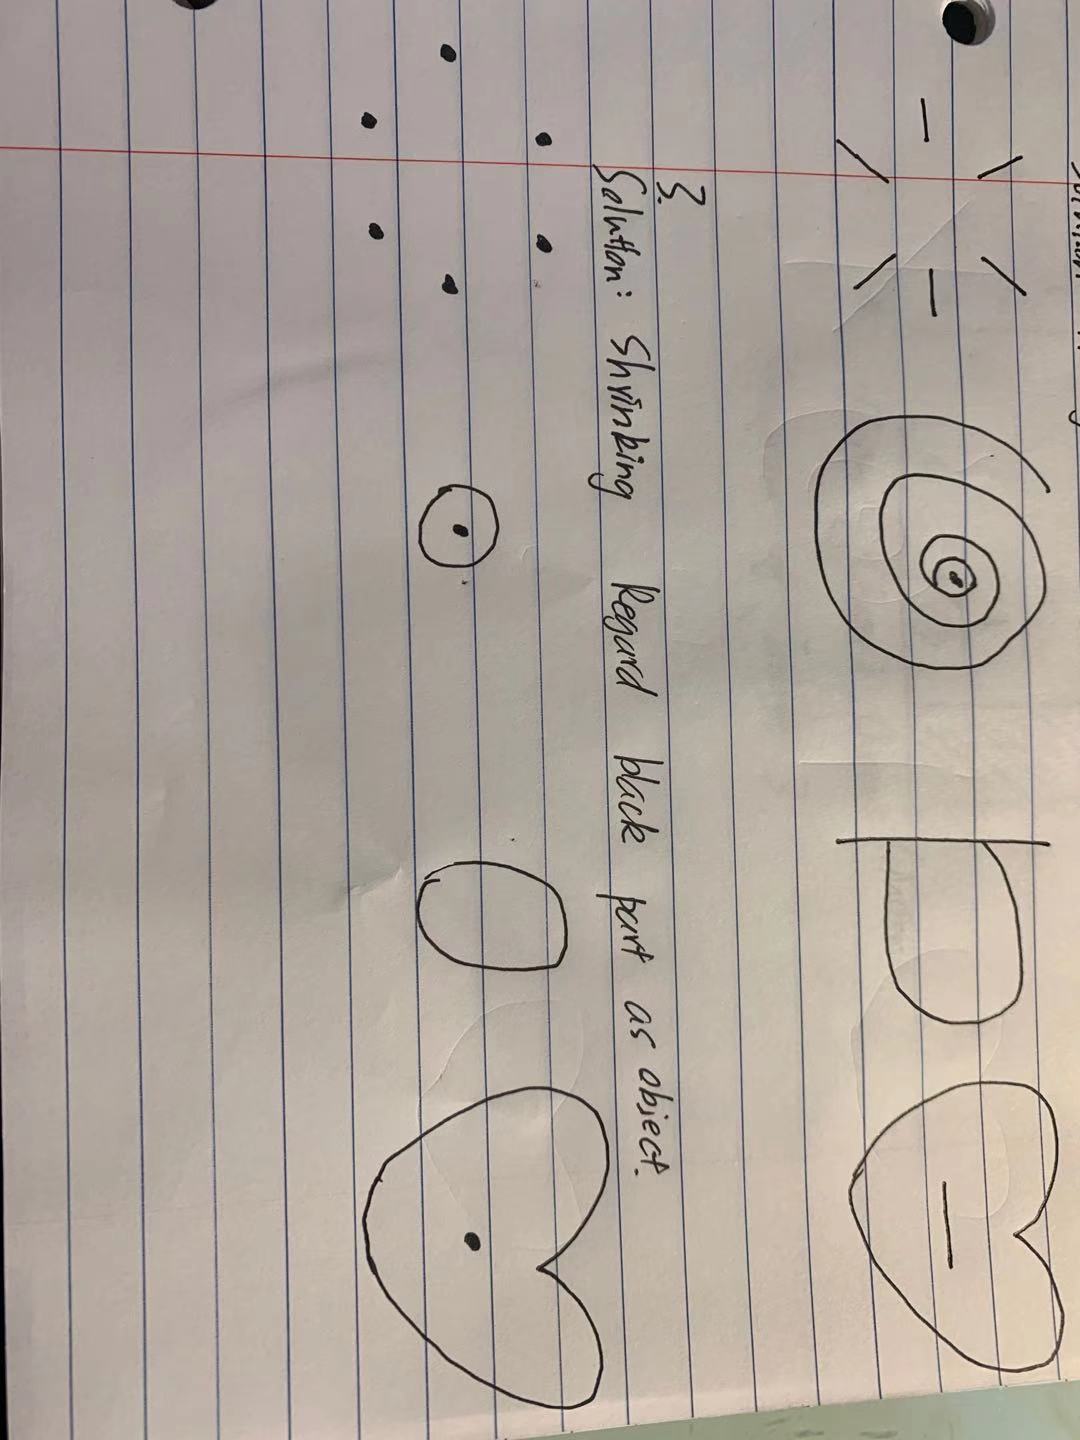 3.
Solution: Shrinking Regard black part as object.